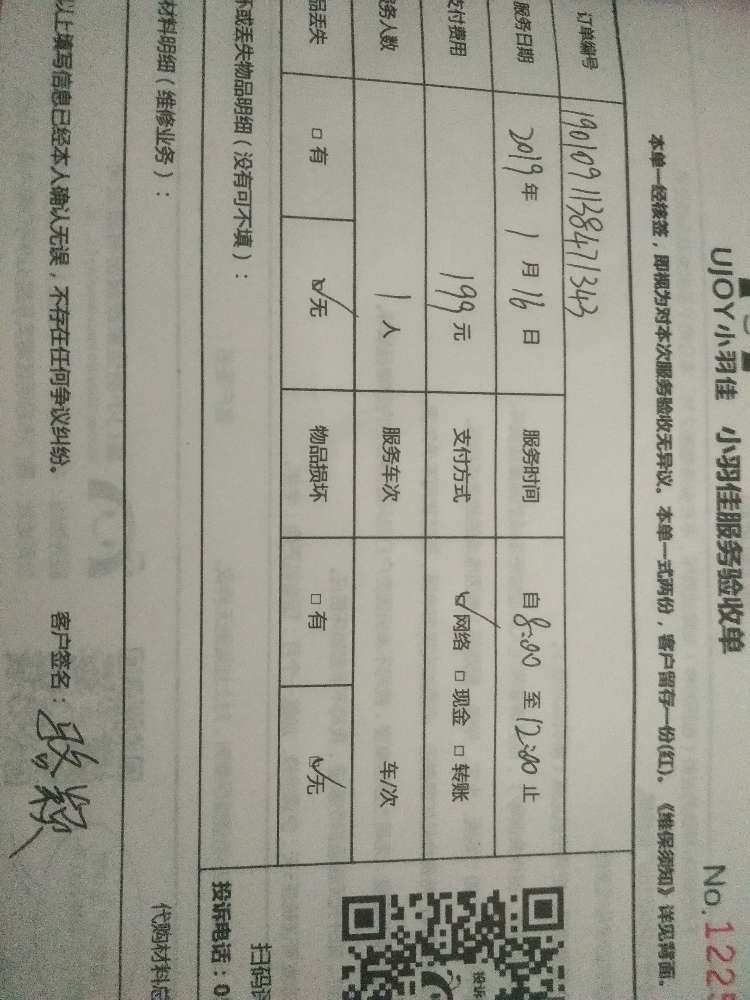 UJOY小羽佳 小羽佳服务验收单 No.1225
本单一经核签，即视为对本次服务验收无异议。本单一式两份，客户留存一份(红)。《维保须知》详见背面。
订单编号 1901091138471343
服务日期 2019年 1月 16日 服务时间 自8:00 至12:00止
支付费用 199元 支付方式 ☑网络 □现金 □转账
务人数 1人 服务车次 车/次
品丢失 □有 ☑无 物品损坏 □有 ☑无
坏或丢失物品明细（没有可不填）：
材料明细（维修业务）：
以上填写信息已经本人确认无误，不存在任何争议纠纷。 客户签名：
投诉
扫码
投诉电话：0
代购材料总